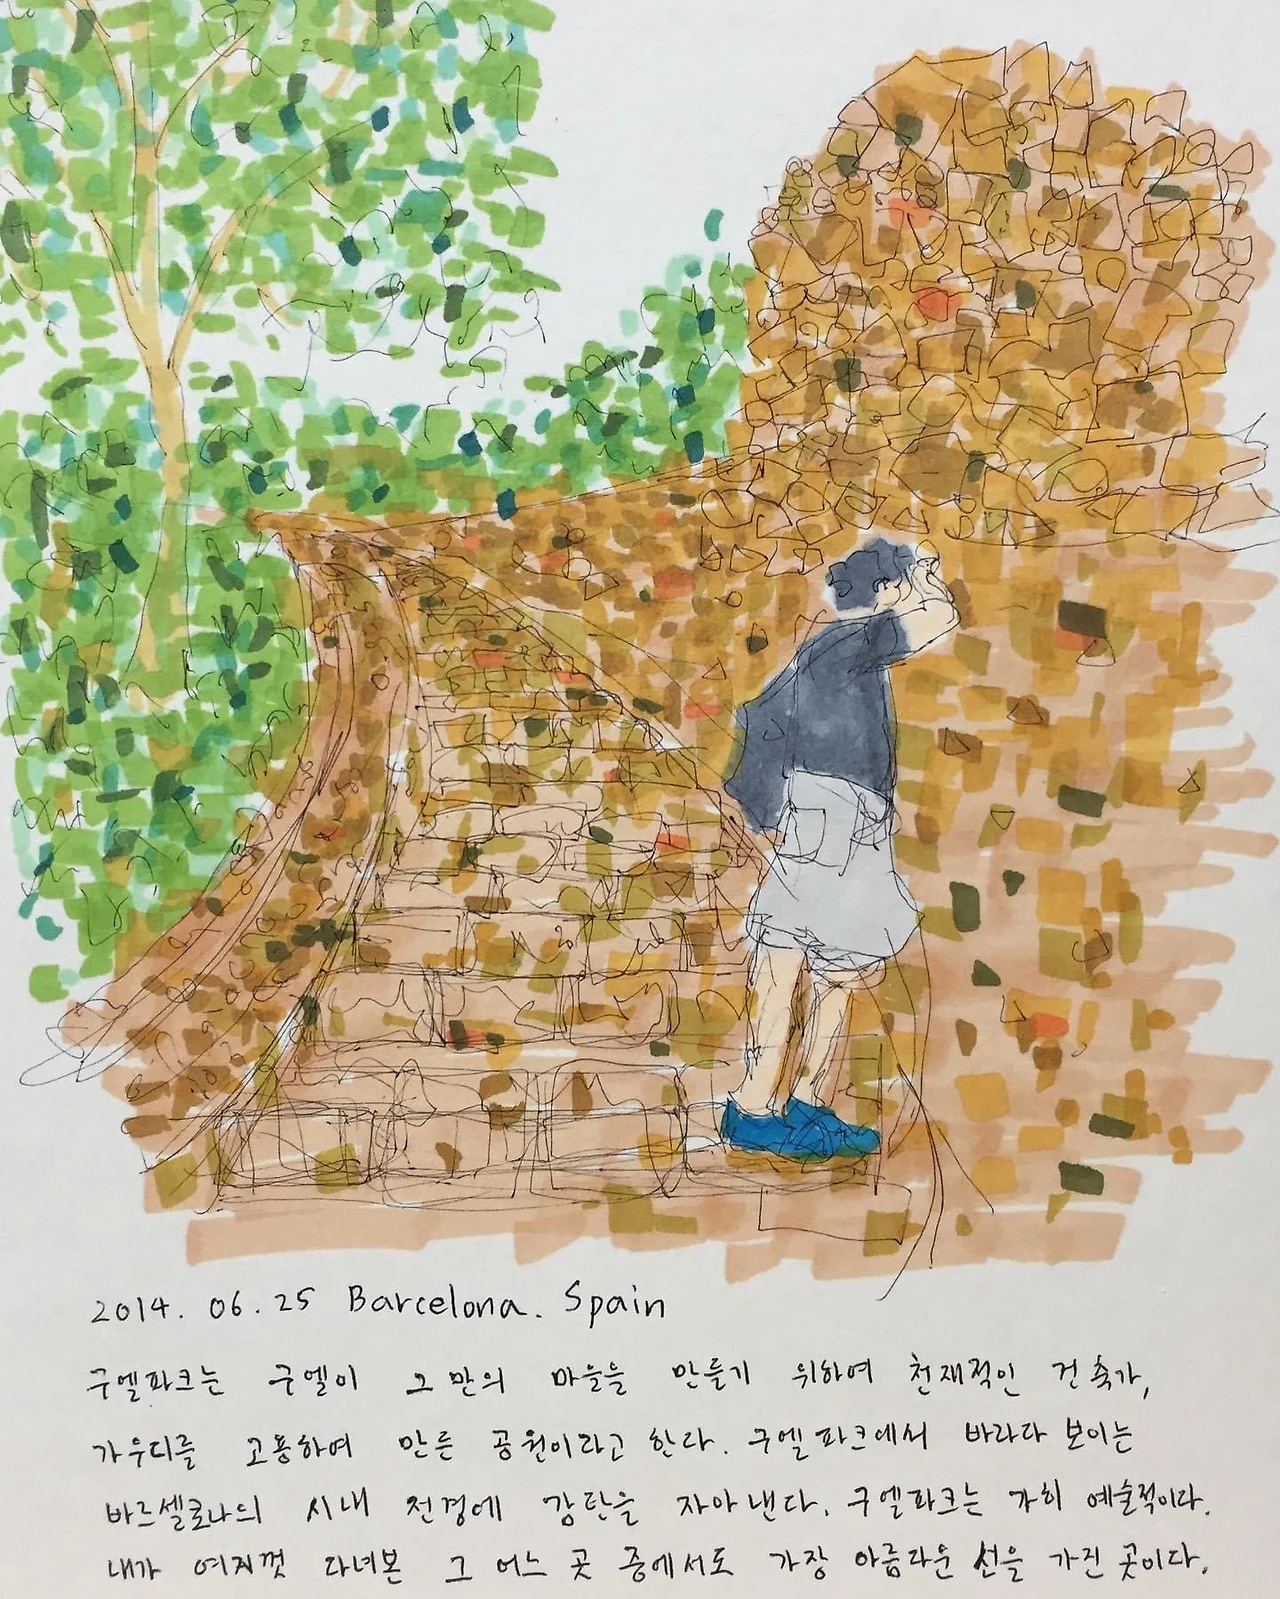 2014. 06. 25 Barcelona. Spain
구엘파크는 구엘이 그만의 마을을 만들기 위하여 천재적인 건축가,
가우디를 고용하여 만든 공원이라고 한다. 구엘파크에서 바라다 보이는
바르셀로나의 시내 전경에 감탄을 자아낸다. 구엘파크는 가히 예술적이다.
내가 여지껏 다녀본 그 어느 곳 중에서도 가장 아름다운 선을 가진 곳이다.